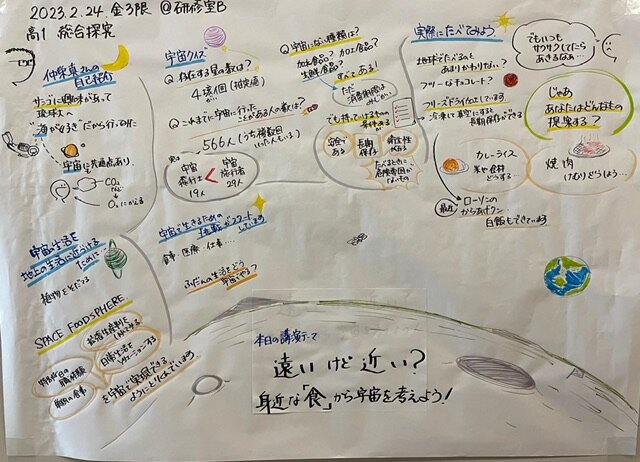 2023.2.24. 金3限 @研修室B
高1 総合探究
仲栄真さんの
自己紹介
サンゴに興味があって
琉球大へ
海が好き だから行ったけど
宇宙に共通点あり
CO₂
O₂にかえる
宇宙クイズ
Q 存在する星の数は?
4京個(推定値)
Q これまでに宇宙に行った
ことがある人の数は?
566人(うち複数回
いった人もいる)
宇宙
飛行士
19人
<
宇宙
旅行者
29人
Q 宇宙にない種類は?
加工食品? カロエ食品?
生鮮食品?
すべてある!
ただ
でも持っていけるものの
条件ある
安全で
ある
長期
保存
たべるときに
危険要因が
ないもの
実際にたべてみよう
地球でたべるのと
あまりかわりない?
フリーなチョコレート?
フリーズドライ加工しています
冷凍して真空にすると
長期保存ができる
でもいつも
サクサクしてたら
あきるなぁ…
じゃあ
あなたはどんなもの
提案する?
カレーライス
焼肉
(けむり)どうしよう…
最近
ローソンの
からあげクン
白飯もできています
宇宙で生きるための
挑戦がスタート
しています
食事・医療・仕事…
ふだんの生活をどう
宇宙でやる?
宇宙生活を
地上の生活に近づける
ために
植物をそだてる
SPACE FOODSPHERE
を宇宙で実現できる
ようにとりくんでいます
本日の講演テーマ
遠いけど近い?
身近な「食」から宇宙を考えよう!